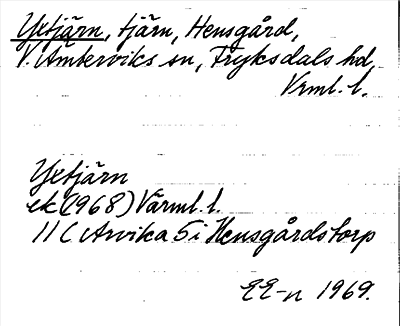 Yxtjärn, tjärn, Hensgård,
V. Ämterviks sn, Fryksdals hd,
Vrml. l.
Yxtjärn
ek (1968) Värml. l.
11 C Arvika 5 i Hensgårdstorp
EE-n 1969.